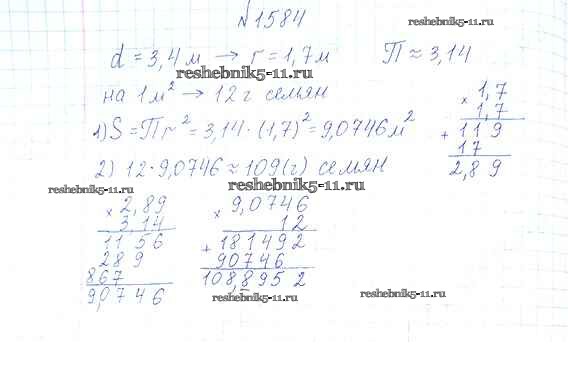 №1584
reshebnik5-11.ru
d = 3,4 м → r = 1,7 м П ≈ 3,14
reshebnik5-11.ru
на 1 м² → 12 г семян
1) S = Пr² = 3,14 · (1,7)² = 9,0746 м²
reshebnik5-11.ru
2) 12 · 9,0746 ≈ 109 (г) семян
× 1,7
1,7
+ 119
17
2,89
reshebnik5-11.ru
reshebnik5-11.ru
× 2,89
3,14
1156
289
867
9,0746
× 9,0746
12
+ 181492
90746
108,8952
reshebnik5-11.ru
reshebnik5-11.ru